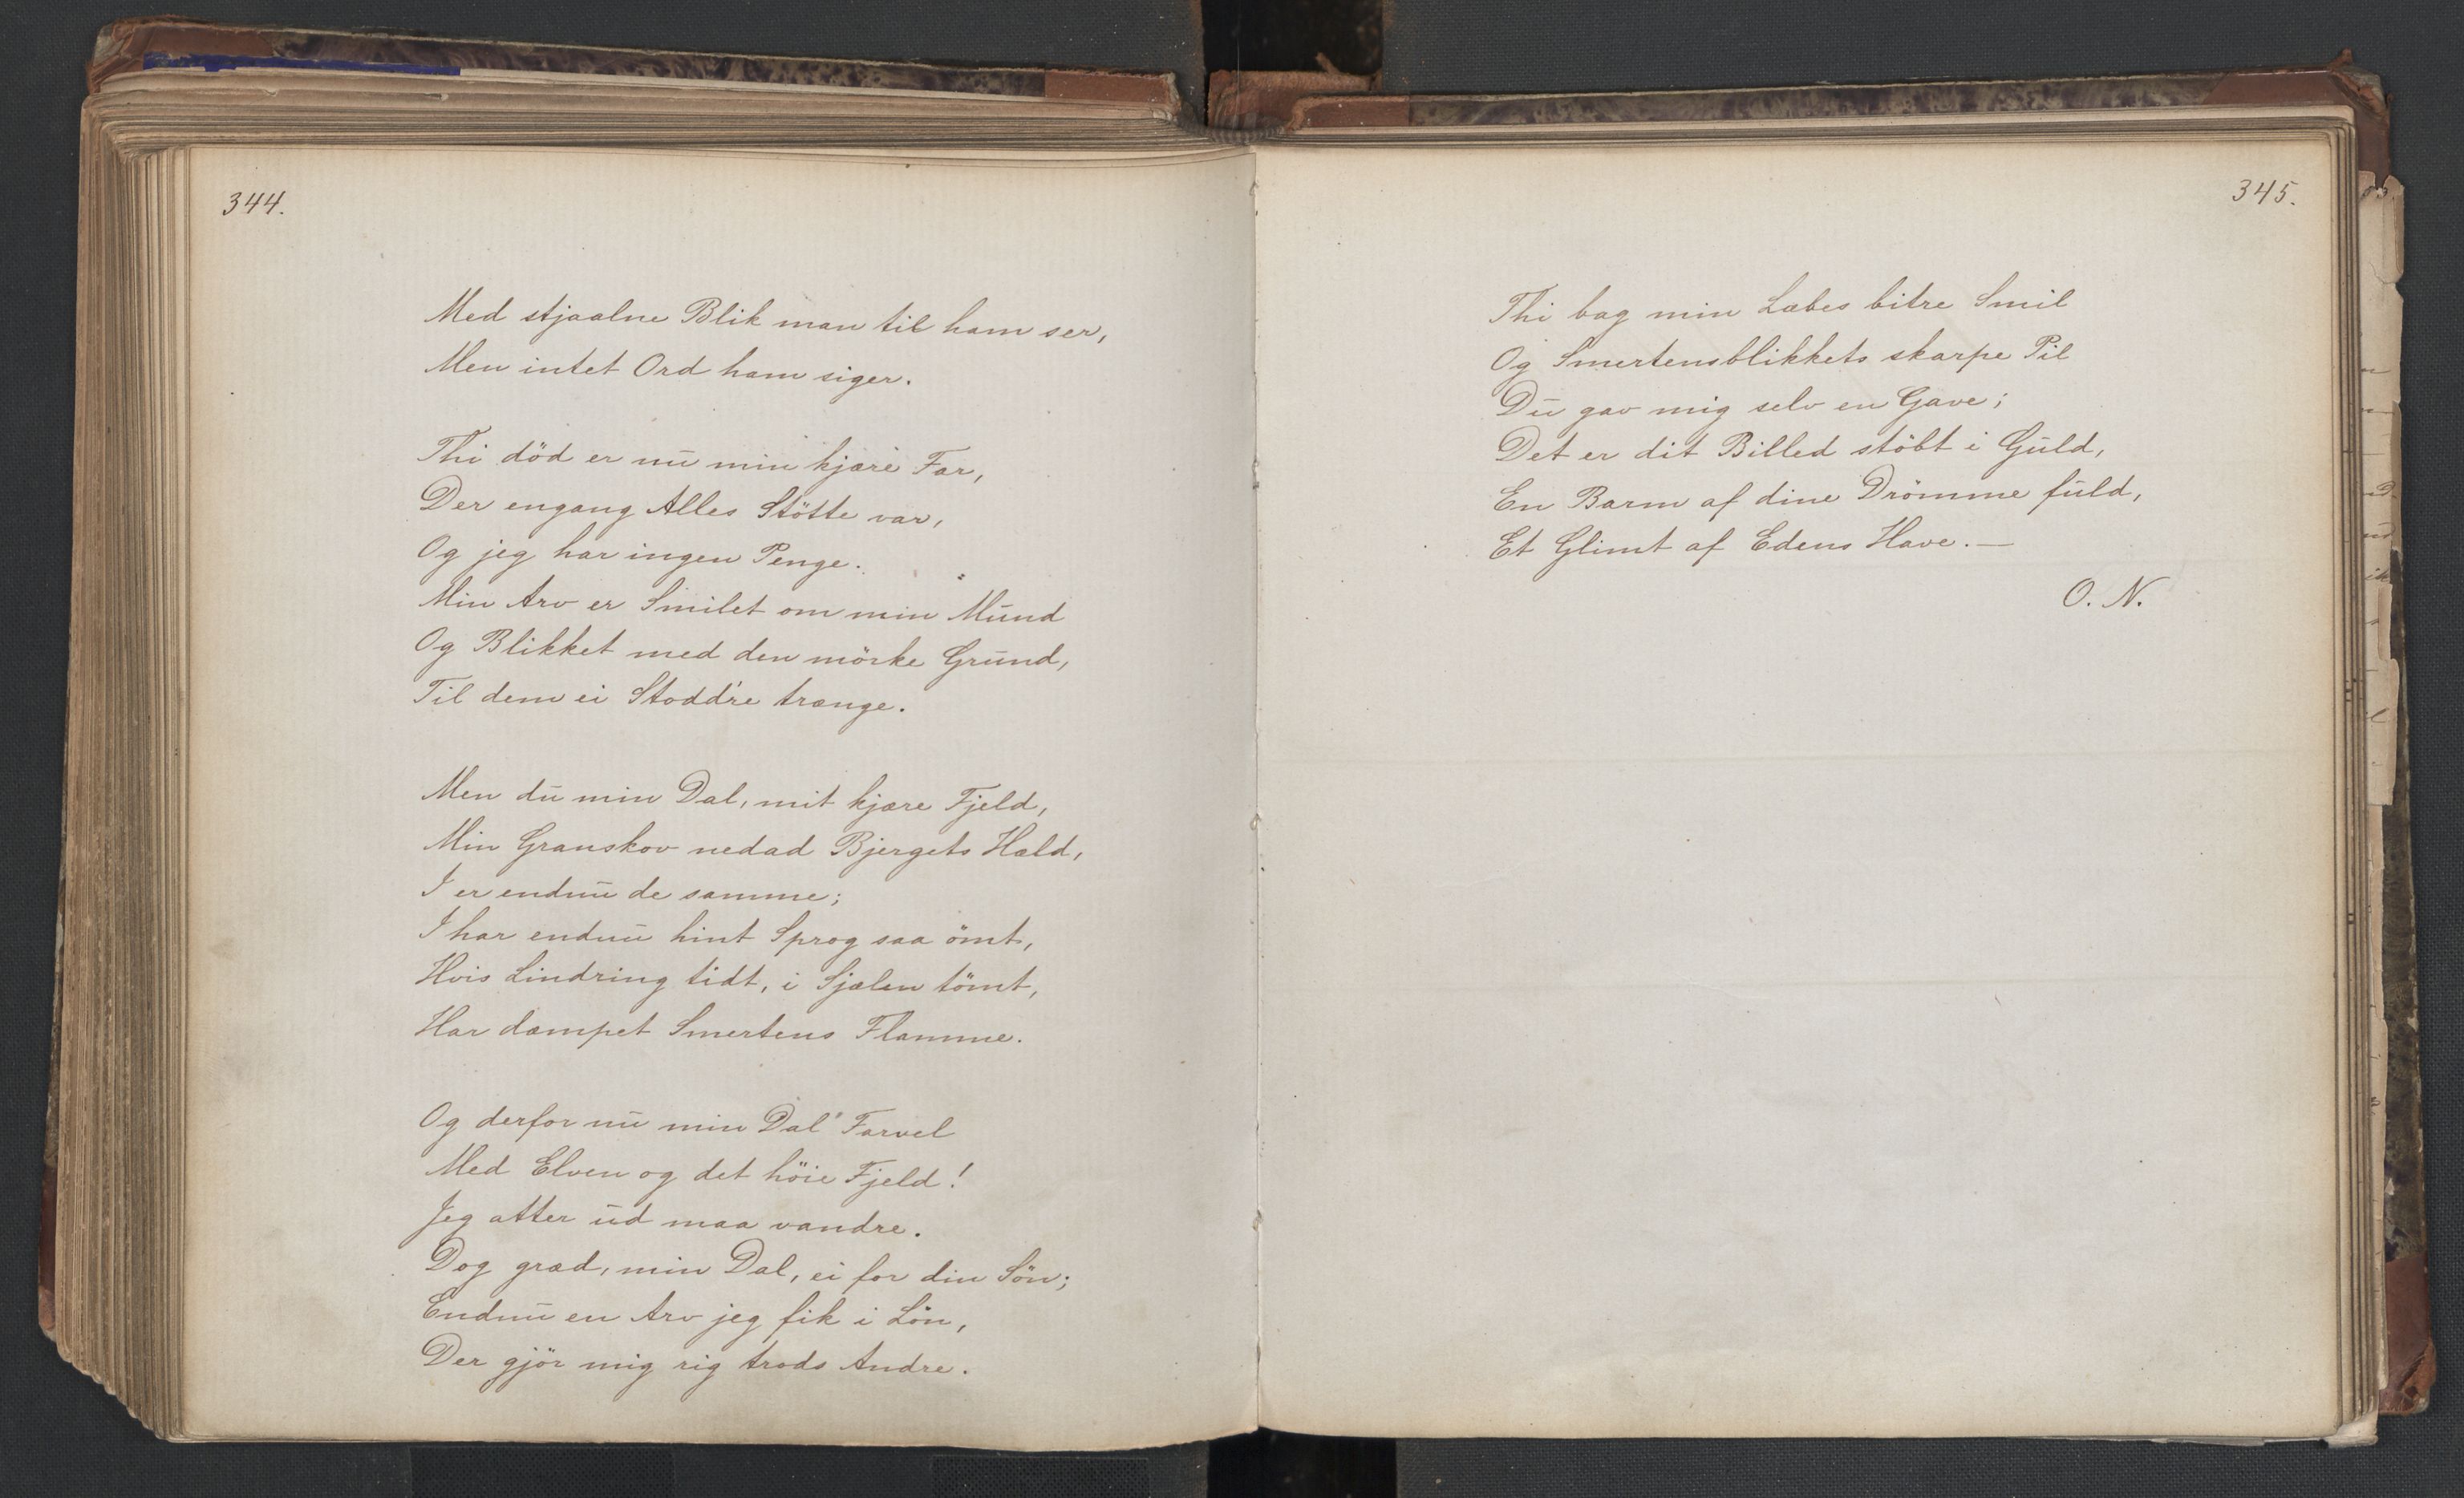 344.
Med stjaalne Blik man til ham ser,
Men intet Ord ham siger.
Thi död er nu min kjære Far,
Der engang Alles Stötte var,
Og jeg har ingen Penge.
Min Arv er Smilet om min Mund
Og Blikket med den mörke Grund,
Til dem ei Stodd're trænge.
Men du min Dal, mit kjære Fjeld,
Min Granskov nedad Bjergets Hæld,
I er endnu de samme;
I har endnu hint Sprog saa ömt,
Hvis Lindring tidt, i Sjælen tömt,
Har dæmpet Smertens Flamme.
Og derfor nu min Dal Farvel
Med Elven og det höie Fjeld!
Jeg atter ud maa vandre.
Dog græd, min Dal, ei for din Sön;
Endnu en Arv jeg fik i Lön,
Der gjör mig rig trods Andre.
345.
Thi bag min Læbes bitre Smil
Og Smertensblikkets skarpe Pil
Du gav mig selv en Gave;
Det er dit Billed stöbt i Guld,
En Barm af dine Drömme fuld,
Et Glimt af Edens Have. —
O. N.